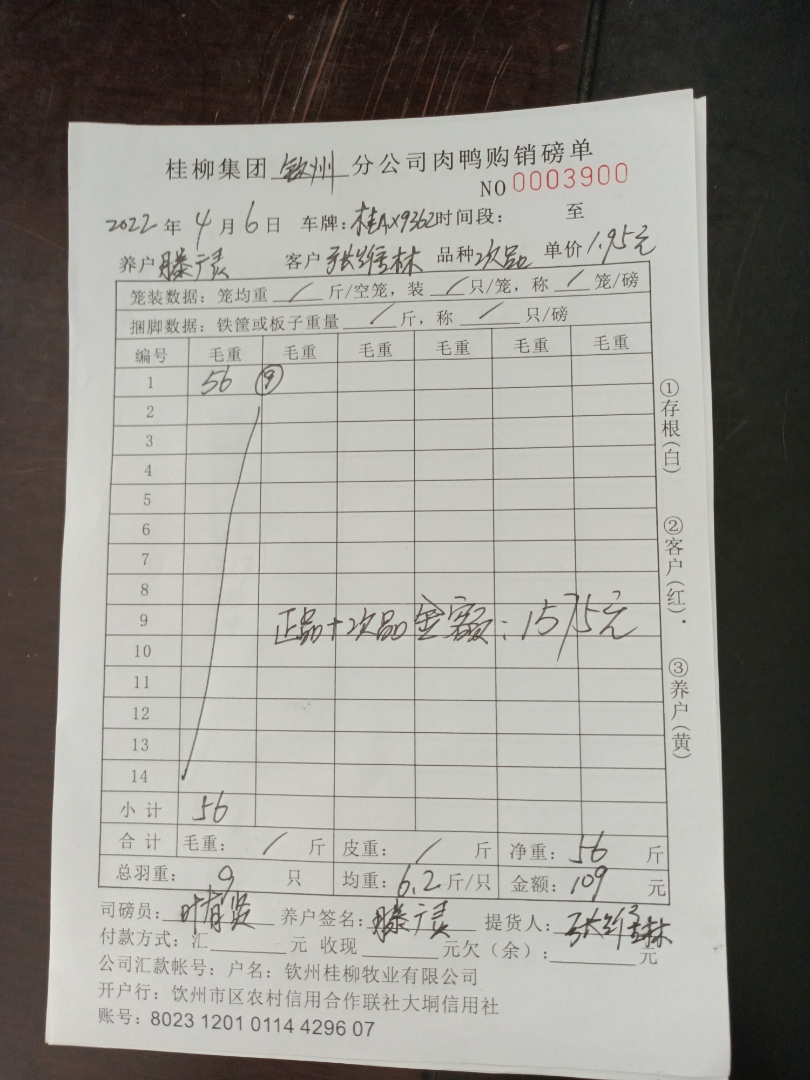 桂柳集团 钦州 分公司肉鸭购销磅单
NO 0003900
2022 年 4 月 6 日 车牌:桂AX9362时间段: 至
养户 滕广责 客户 张维林 品种 次品 单价 1.95元
笼装数据:笼均重 / 斤/空笼,装 / 只/笼,称 / 笼/磅
捆脚数据:铁筐或板子重量 / 斤,称 / 只/磅
编号 毛重 毛重 毛重 毛重 毛重 毛重
1 56 ⑨
2
3
4
5
6
7
8
9
正品+次品金额:1575元
10
11
12
13
14
小计 56
合计 毛重: / 斤 皮重: / 斤 净重: 56 斤
总羽重: 9 只 均重: 6.2 斤/只 金额: 109 元
司磅员: 叶有贤 养户签名: 滕广责 提货人: 张维林
付款方式:汇 元 收现 元欠(余): 元
公司汇款帐号:户名:钦州桂柳牧业有限公司
开户行:钦州市区农村信用合作联社大垌信用社
账号:8023 1201 0114 4296 07
①存根(白)
②客户(红).
③养户(黄)